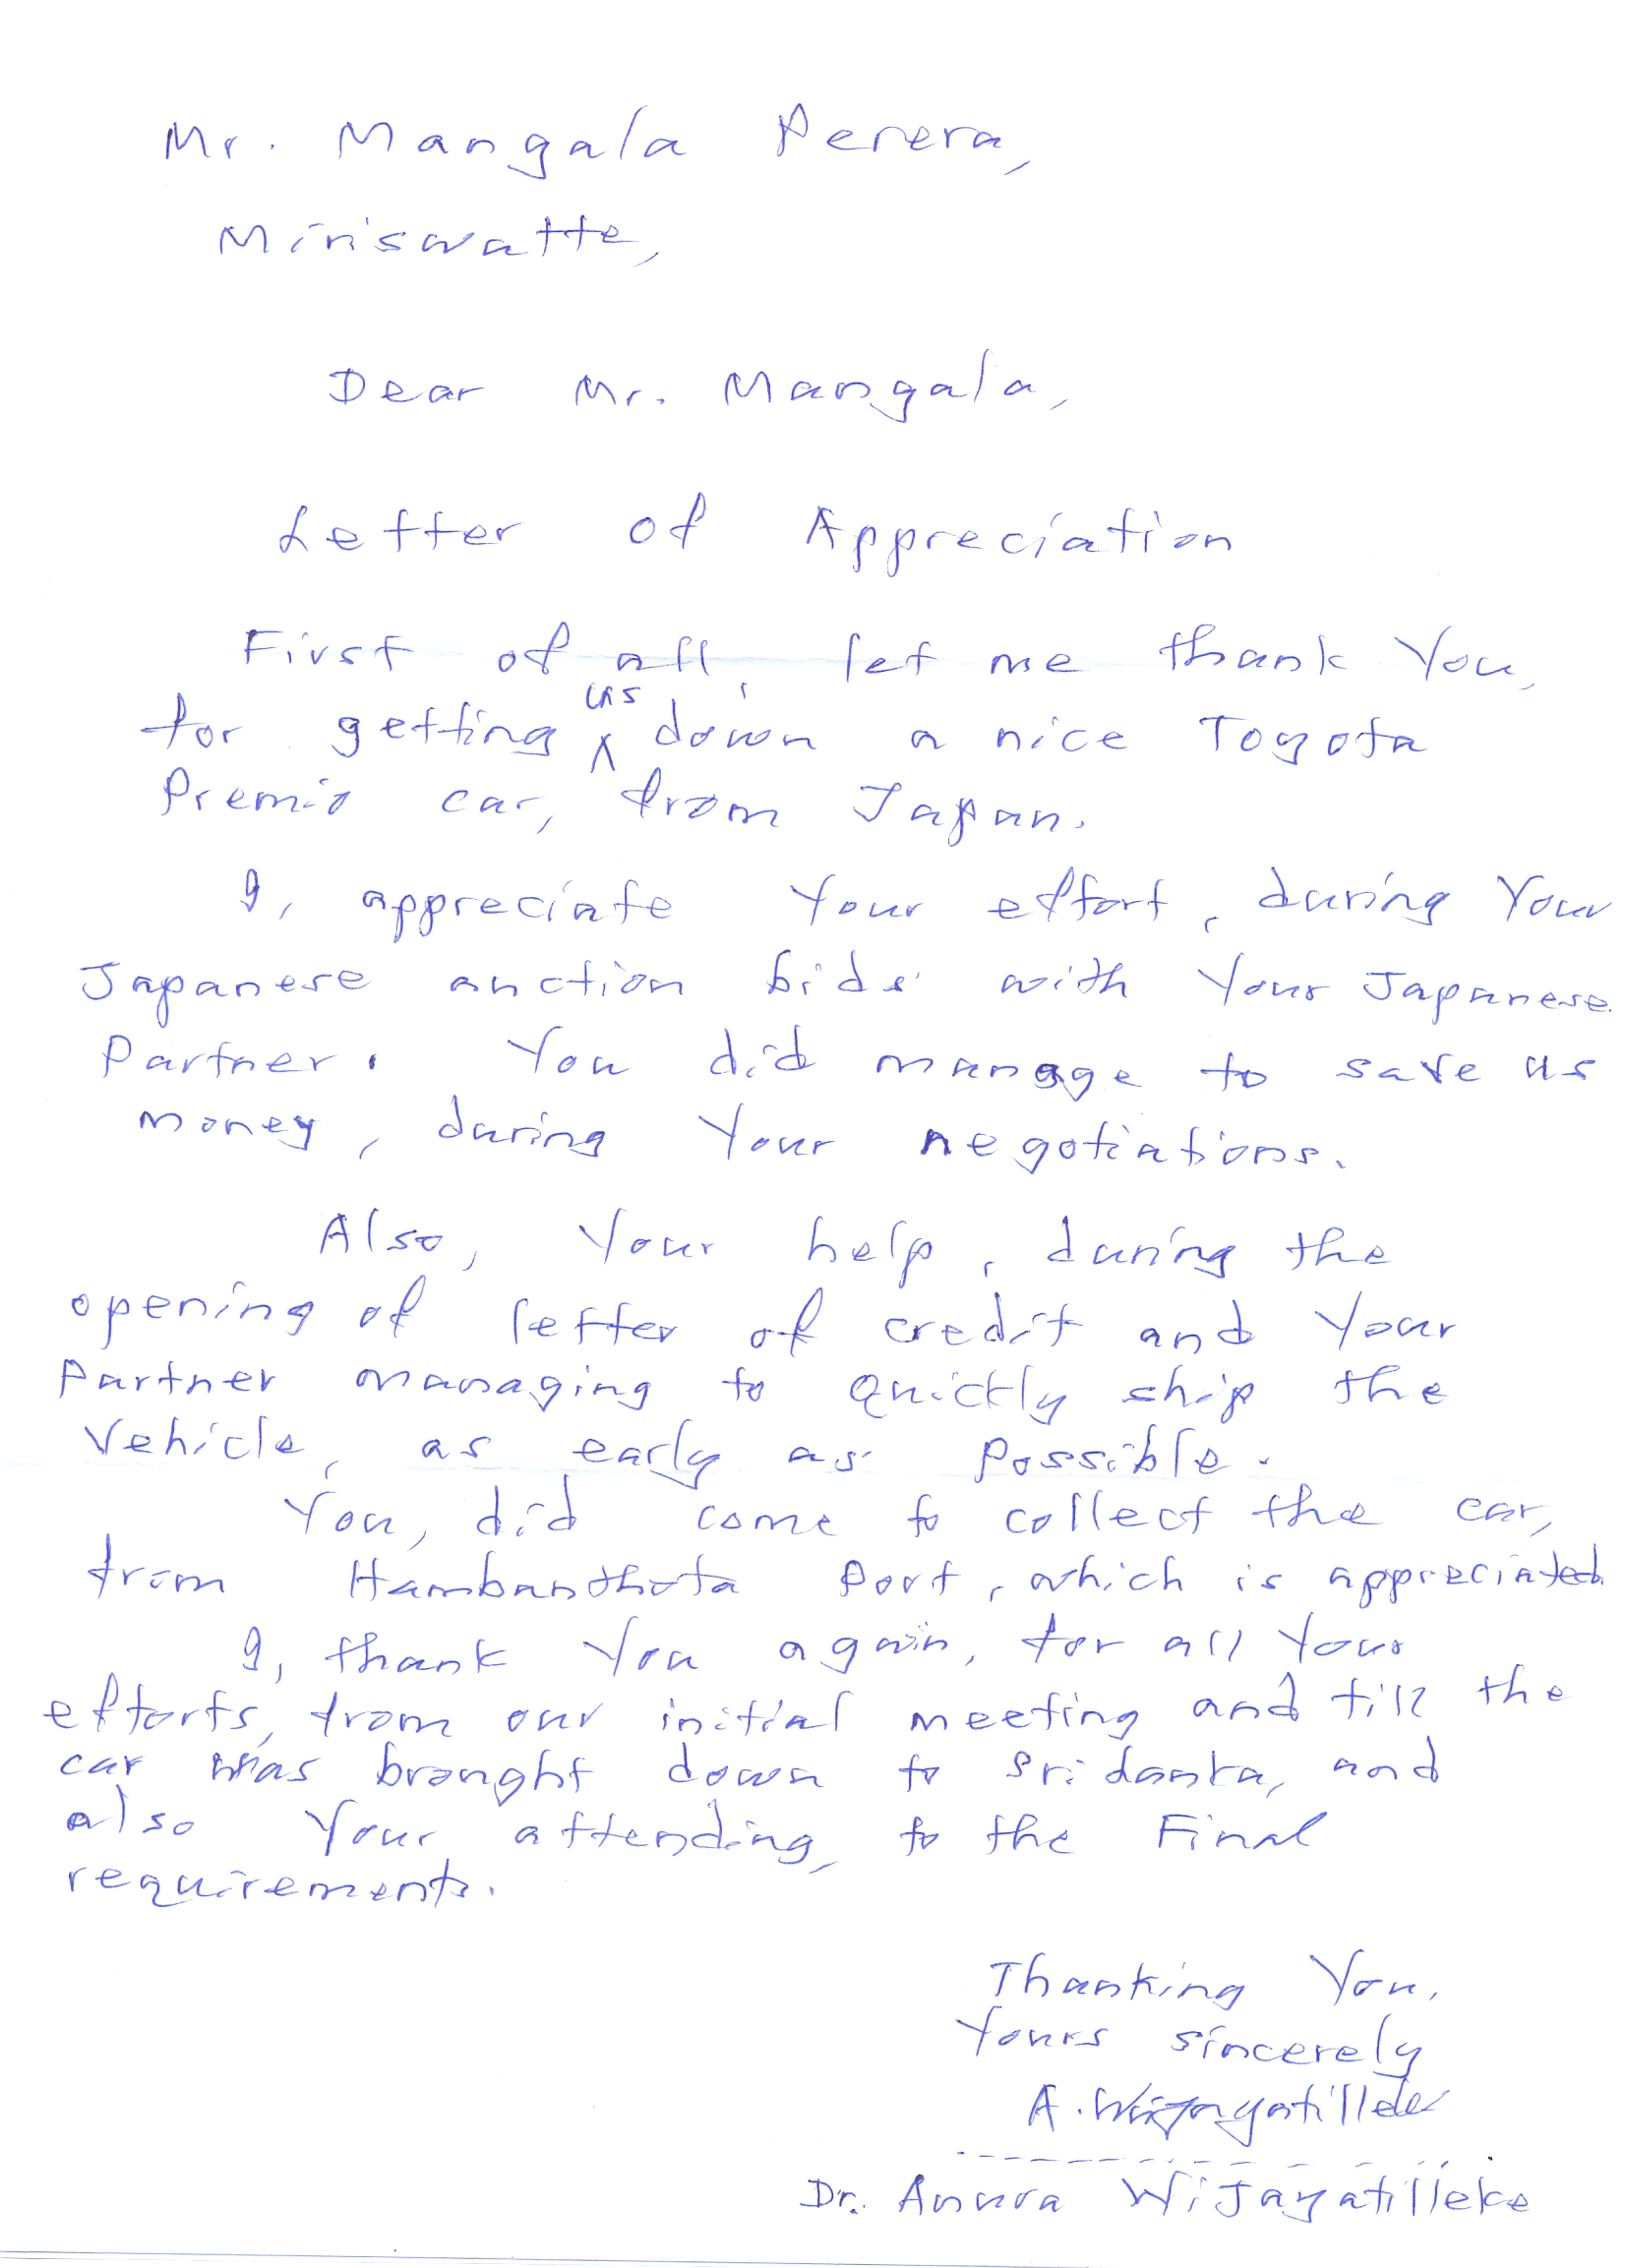 Mr. Mangala Perera,
Miriswatte,
Dear Mr. Mangala,
Letter of Appreciation
First of all, let me thank You,
for getting us down a nice Toyota
Premio car, from Japan.
I, appreciate Your effort, during Your
Japanese auction bids with Your Japanese
Partner. You did manage to save us
money, during Your negotiations.
Also, Your help, during the
opening of letter of credit and Your
Partner managing to quickly ship the
Vehicle, as early as possible.
You, did come to collect the car,
from Hambanthota Port, which is appreciated.
I, thank You again, for all Your
efforts, from our initial meeting and till the
car was brought down to Sri Lanka, and
also Your attending, to the Final
requirements.
Thanking You,
Yours sincerely
A. Wijayatilleke
Dr. Anura Wijayatilleke